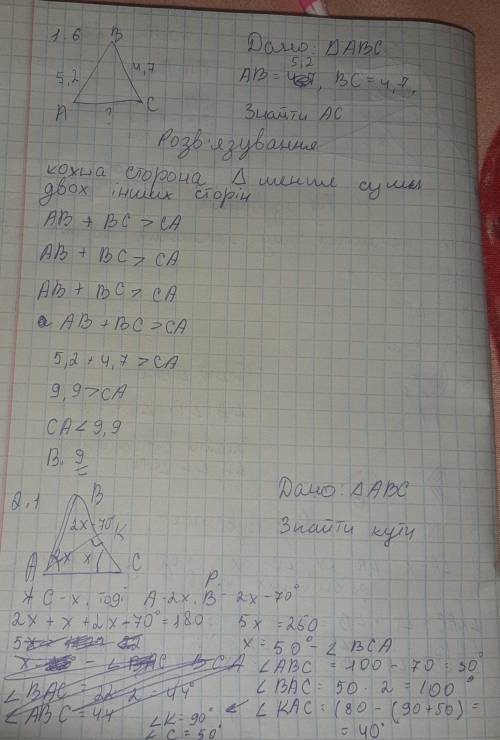 1.6
B
5,2
4,7
A
C
?
Дано: ΔABC
5,2
AB = , BC = 4,7,
Знайти AC
Розв'язування
кожна сторона Δ менше суми
двох інших сторін
AB + BC > CA
AB + BC > CA
AB + BC > CA
AB + BC > CA
5,2 + 4,7 > CA
9,9 > CA
CA < 9,9
В. 9
2.1
B
2x-70°
K
A
2x
x
C
Дано: ΔABC
Знайти кути
Р.
C - x, тоді A - 2x, B - 2x - 70°
2x + x + 2x - 70° = 180
5x = 250
x = 50° - ∠ BCA
∠ABC = 100 - 70 = 30°
∠BAC = 50 · 2 = 100°
∠BAC = 22 · 2 = 44°
∠ABC = 44
∠KAC = 180 - (90 + 50) =
= 40°
∠K = 90°
∠C = 50°